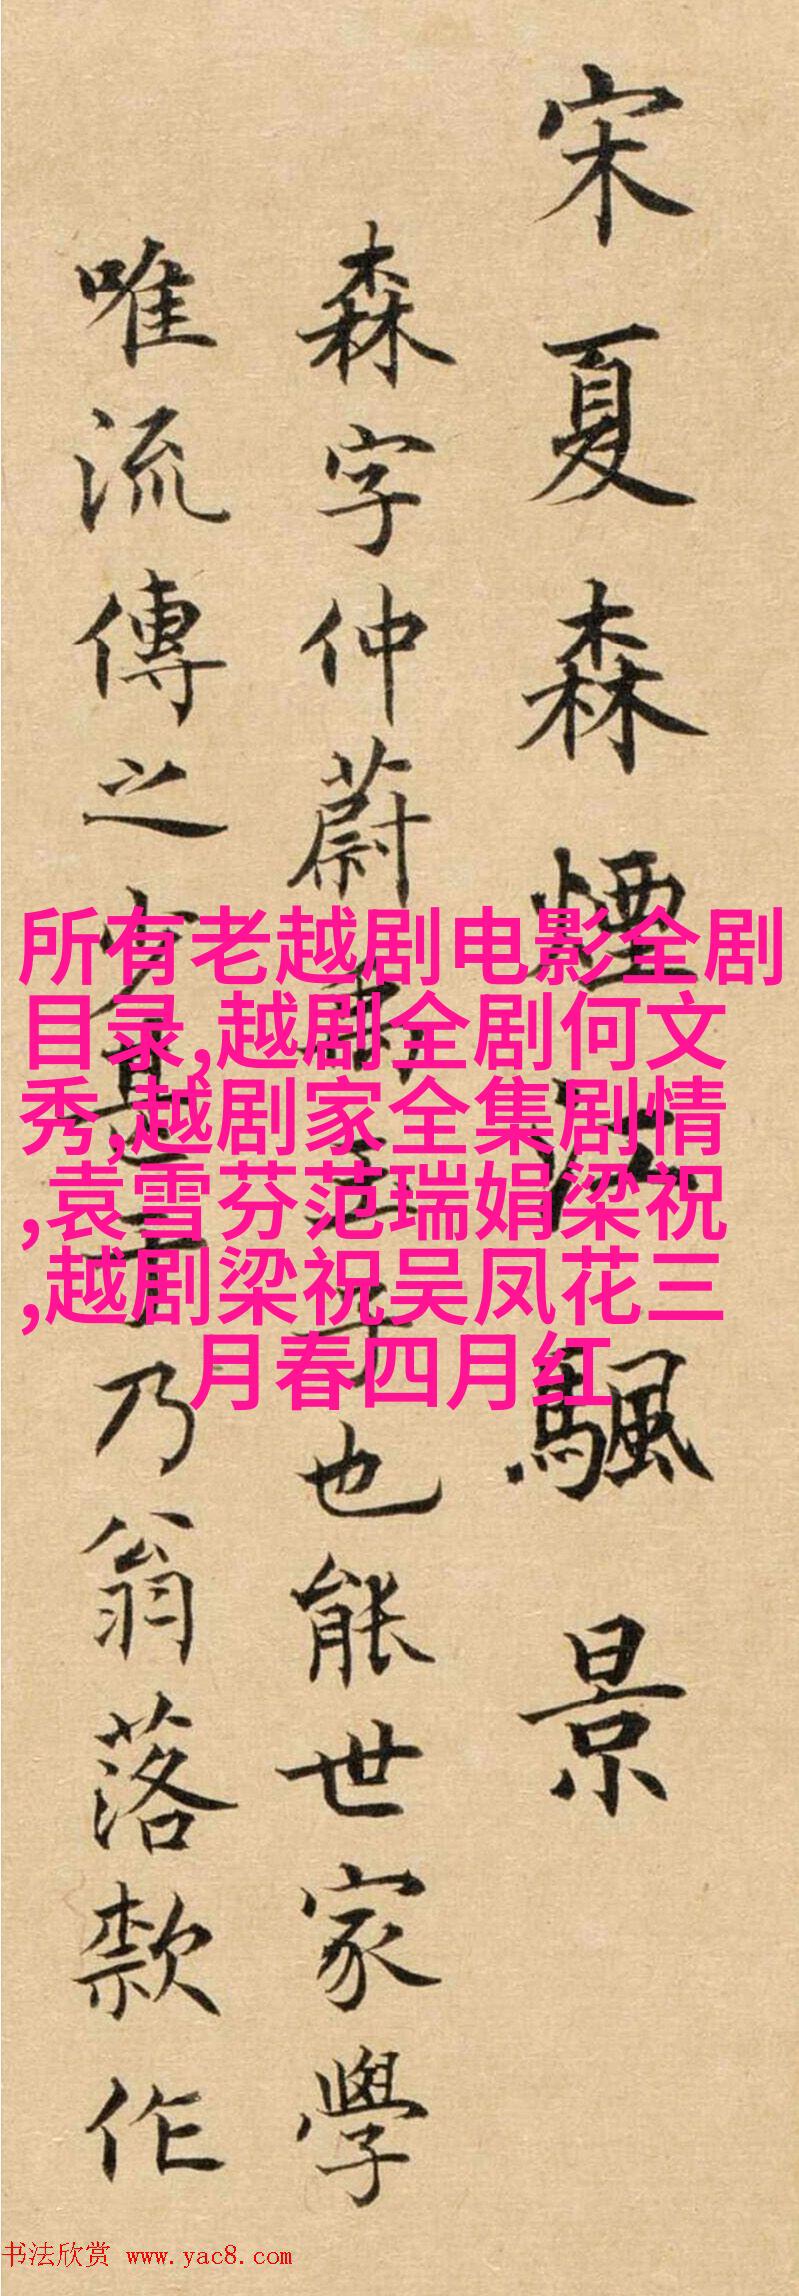 宋夏森煙江飄景
森字仲蔚珪子也能世家學
唯流傳之少真乃翁落款作
所有老越剧电影全剧
目录,越剧全剧何文
秀,越剧家全集剧情
,袁雪芬范瑞娟梁祝
,越剧梁祝吴凤花三
月春四月红
书法欣赏 www.yac8.com